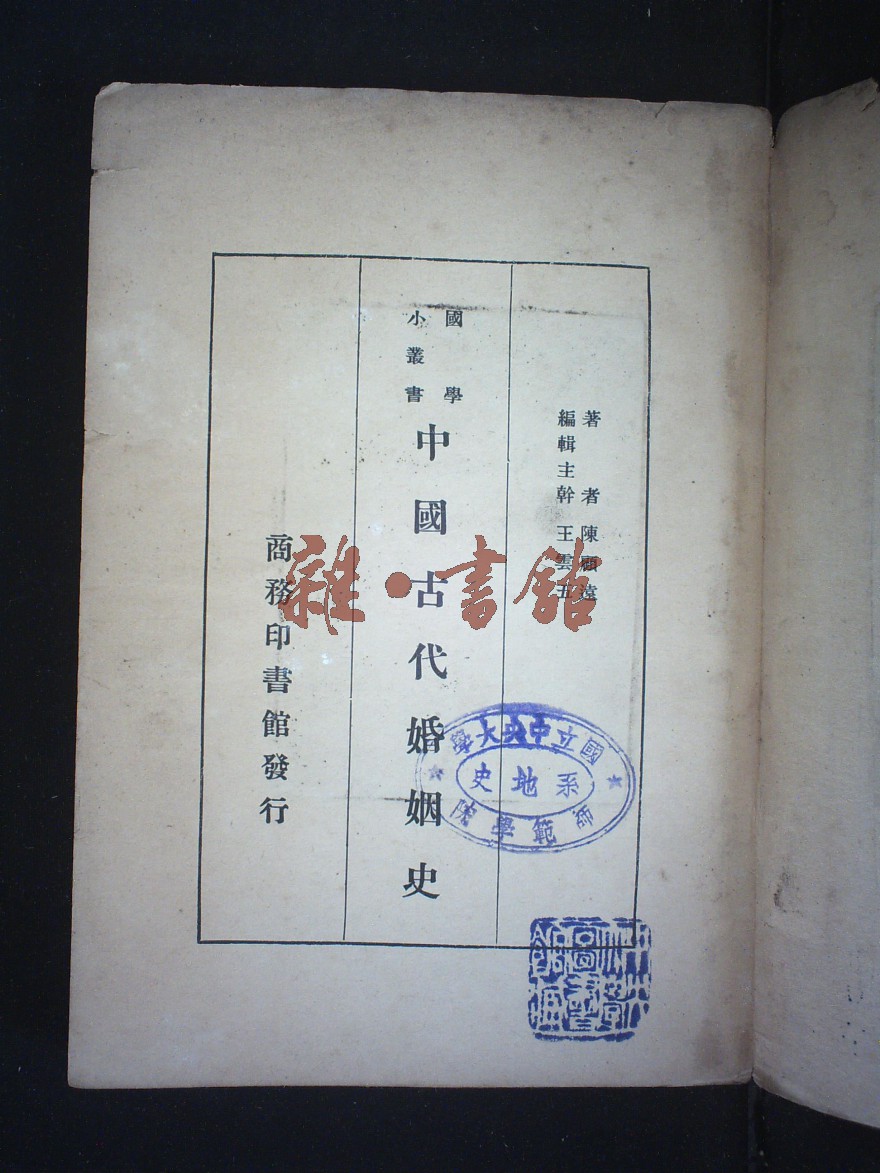 著者 陳顧遠
編輯主幹 王雲五
國學
小叢書
中國古代婚姻史
商務印書館發行
雜·書館
國立中央大學
系地史
師範學院